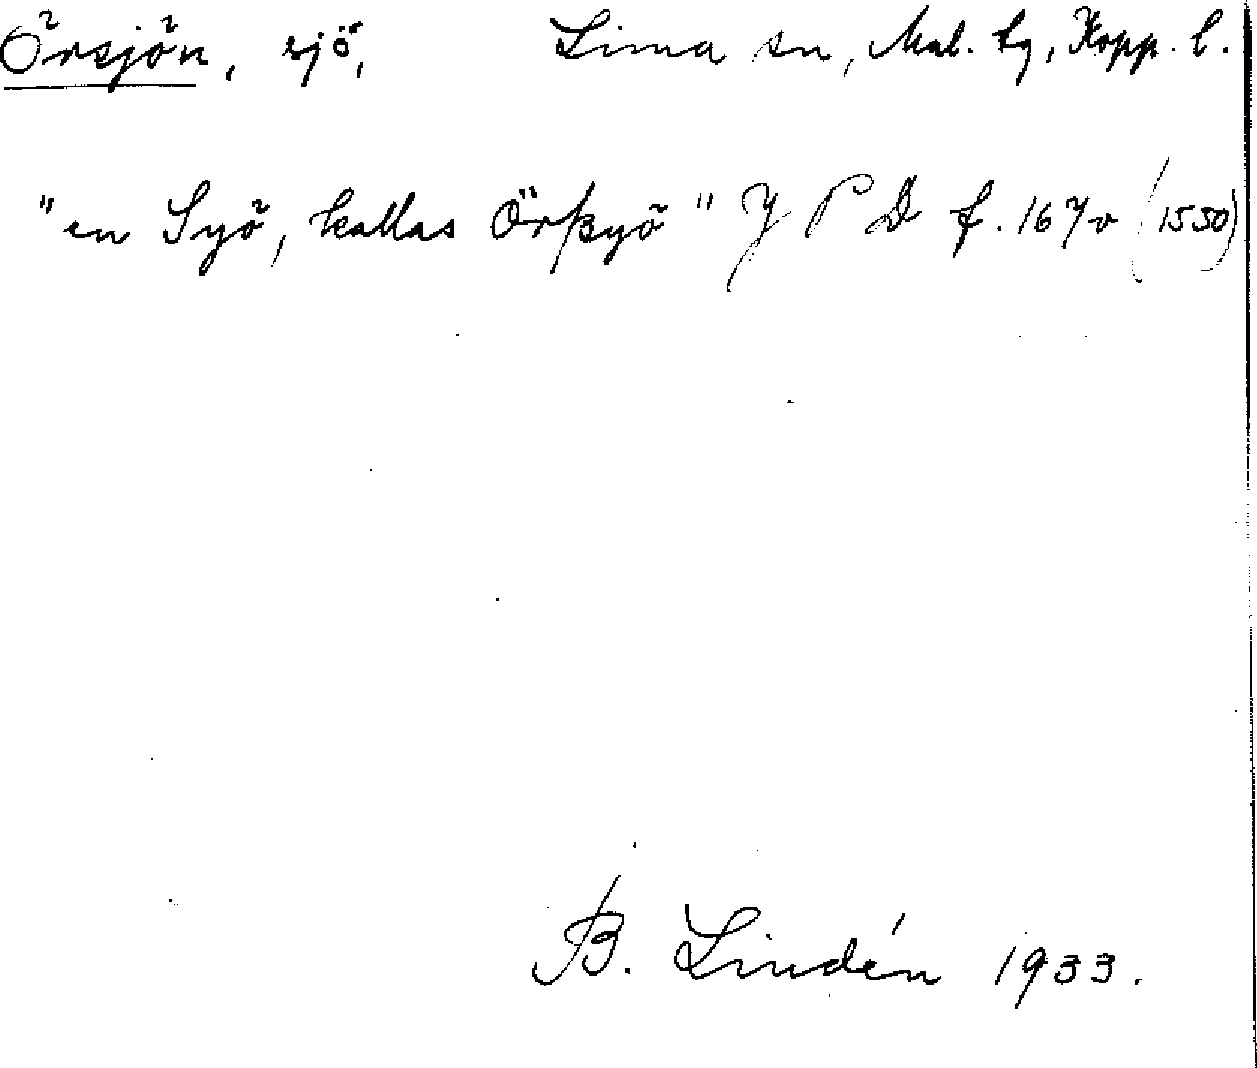 Örsjön, sjö, Lima sn, Mal. tg, Kopp. l.
"en Syö, kallas Örßyö" J P D f. 167v (1550)
B. Lindén 1933.